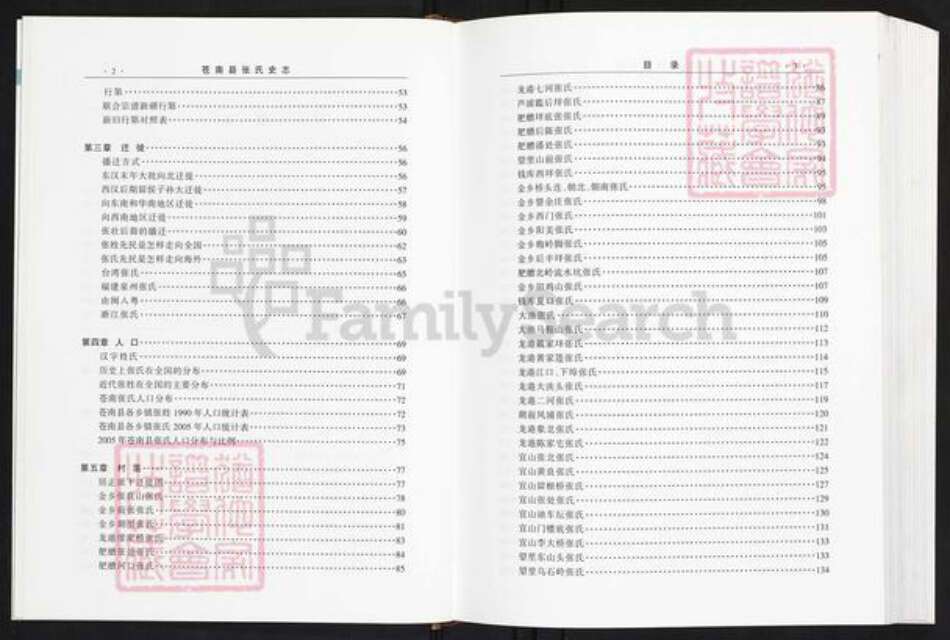 · 2 · 苍南县张氏史志
行第 53
联合宗谱新碛行第 53
新旧行第对照表 54
第三章 迁徙 56
播迁方式 56
东汉末年大批向北迁徙 56
西汉后期留侯子孙大迁徙 57
向东南和华南地区迁徙 58
向西南地区迁徙 59
张壮后裔的播迁 60
张姓先民是怎样走向全国 62
张氏先民是怎样走向海外 63
台湾张氏 65
福建泉州张氏 66
由闽入粤 66
浙江张氏 67
第四章 人口 69
汉字姓氏 69
历史上张氏在全国的分布 69
近代张姓在全国的主要分布 71
苍南张氏人口分布 72
苍南县各乡镇张姓1990年人口统计表 72
苍南县各乡镇张氏2005年人口统计表 73
2005年苍南县张氏人口分布与比例 75
第五章 村落 77
77
金乡张良山张氏 78
金乡 张氏 80
金乡 张氏 81
龙港 桥张氏 83
肥艚 张氏 84
肥艚河口张氏 85
目录
龙港七河张氏 86
芦浦鑑后垟张氏 87
肥艚垟底张张氏 89
肥艚后陈张氏 93
肥艚潘处张氏 93
望里山前张氏 94
钱库西垟张氏 95
金乡桥头连、朝北、朝南张氏 95
金乡暨余庄张氏 98
金乡西门张氏 101
金乡阳美张氏 103
金乡梅岭脚张氏 105
金乡后半垟张氏 105
肥艚北岭流水坑张氏 107
金乡田鸡山张氏 107
钱库夏口张氏 109
大渔张氏 110
大渔马鞍山张氏 112
龙港戴家垟张氏 113
龙港黄家莲张氏 114
龙港江口、下埠张氏 115
龙港大洪头张氏 117
龙港二河张氏 119
湖前凤浦张氏 120
龙港象北张氏 121
龙港陈家宅张氏 122
宜山张北张氏 124
宜山黄良张氏 125
宜山留棚桥张氏 127
宜山张处张氏 129
宜山油车坛张氏 130
宜山门楼底张氏 131
宜山李大桥张氏 133
望里东山头张氏 133
望里乌石岭张氏 134
FamilySearch